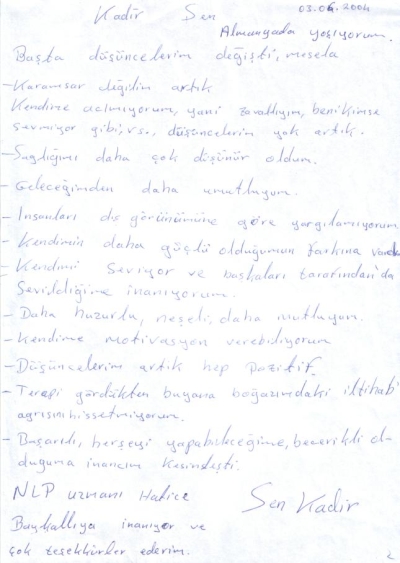 Kadir Şen 03.06.2004
Almanyada yaşıyorum.
Başta düşüncelerim değişti, mesela
- Karamsar değilim artık
Kendime acımıyorum, yani zavallıyım, beni kimse
sevmiyor gibi, vs., düşüncelerim yok artık.
- Sağlığımı daha çok düşünür oldum.
- Geleceğimden daha umutluyum.
- İnsanları dış görünümüne göre yargılamıyorum
- Kendimin daha güçlü olduğumun farkına vardım
- Kendimi seviyor ve başkaları tarafından da
Sevildiğime inanıyorum.
- Daha huzurlu, neşeli, daha mutluyum.
- Kendime motivasyon verebiliyorum
- Düşüncelerim artık hep pozitif.
- Terapi gördükten buyana boğazımdaki iltihab
ağrısını hissetmiyorum.
- Başarılı, herşeyi yapabileceğime, becerikli ol-
duğuma inancım kesinleşti.
NLP uzmanı Hatice
Şen Kadir
Baykallıya inanıyor ve
çok teşekkürler ederim.